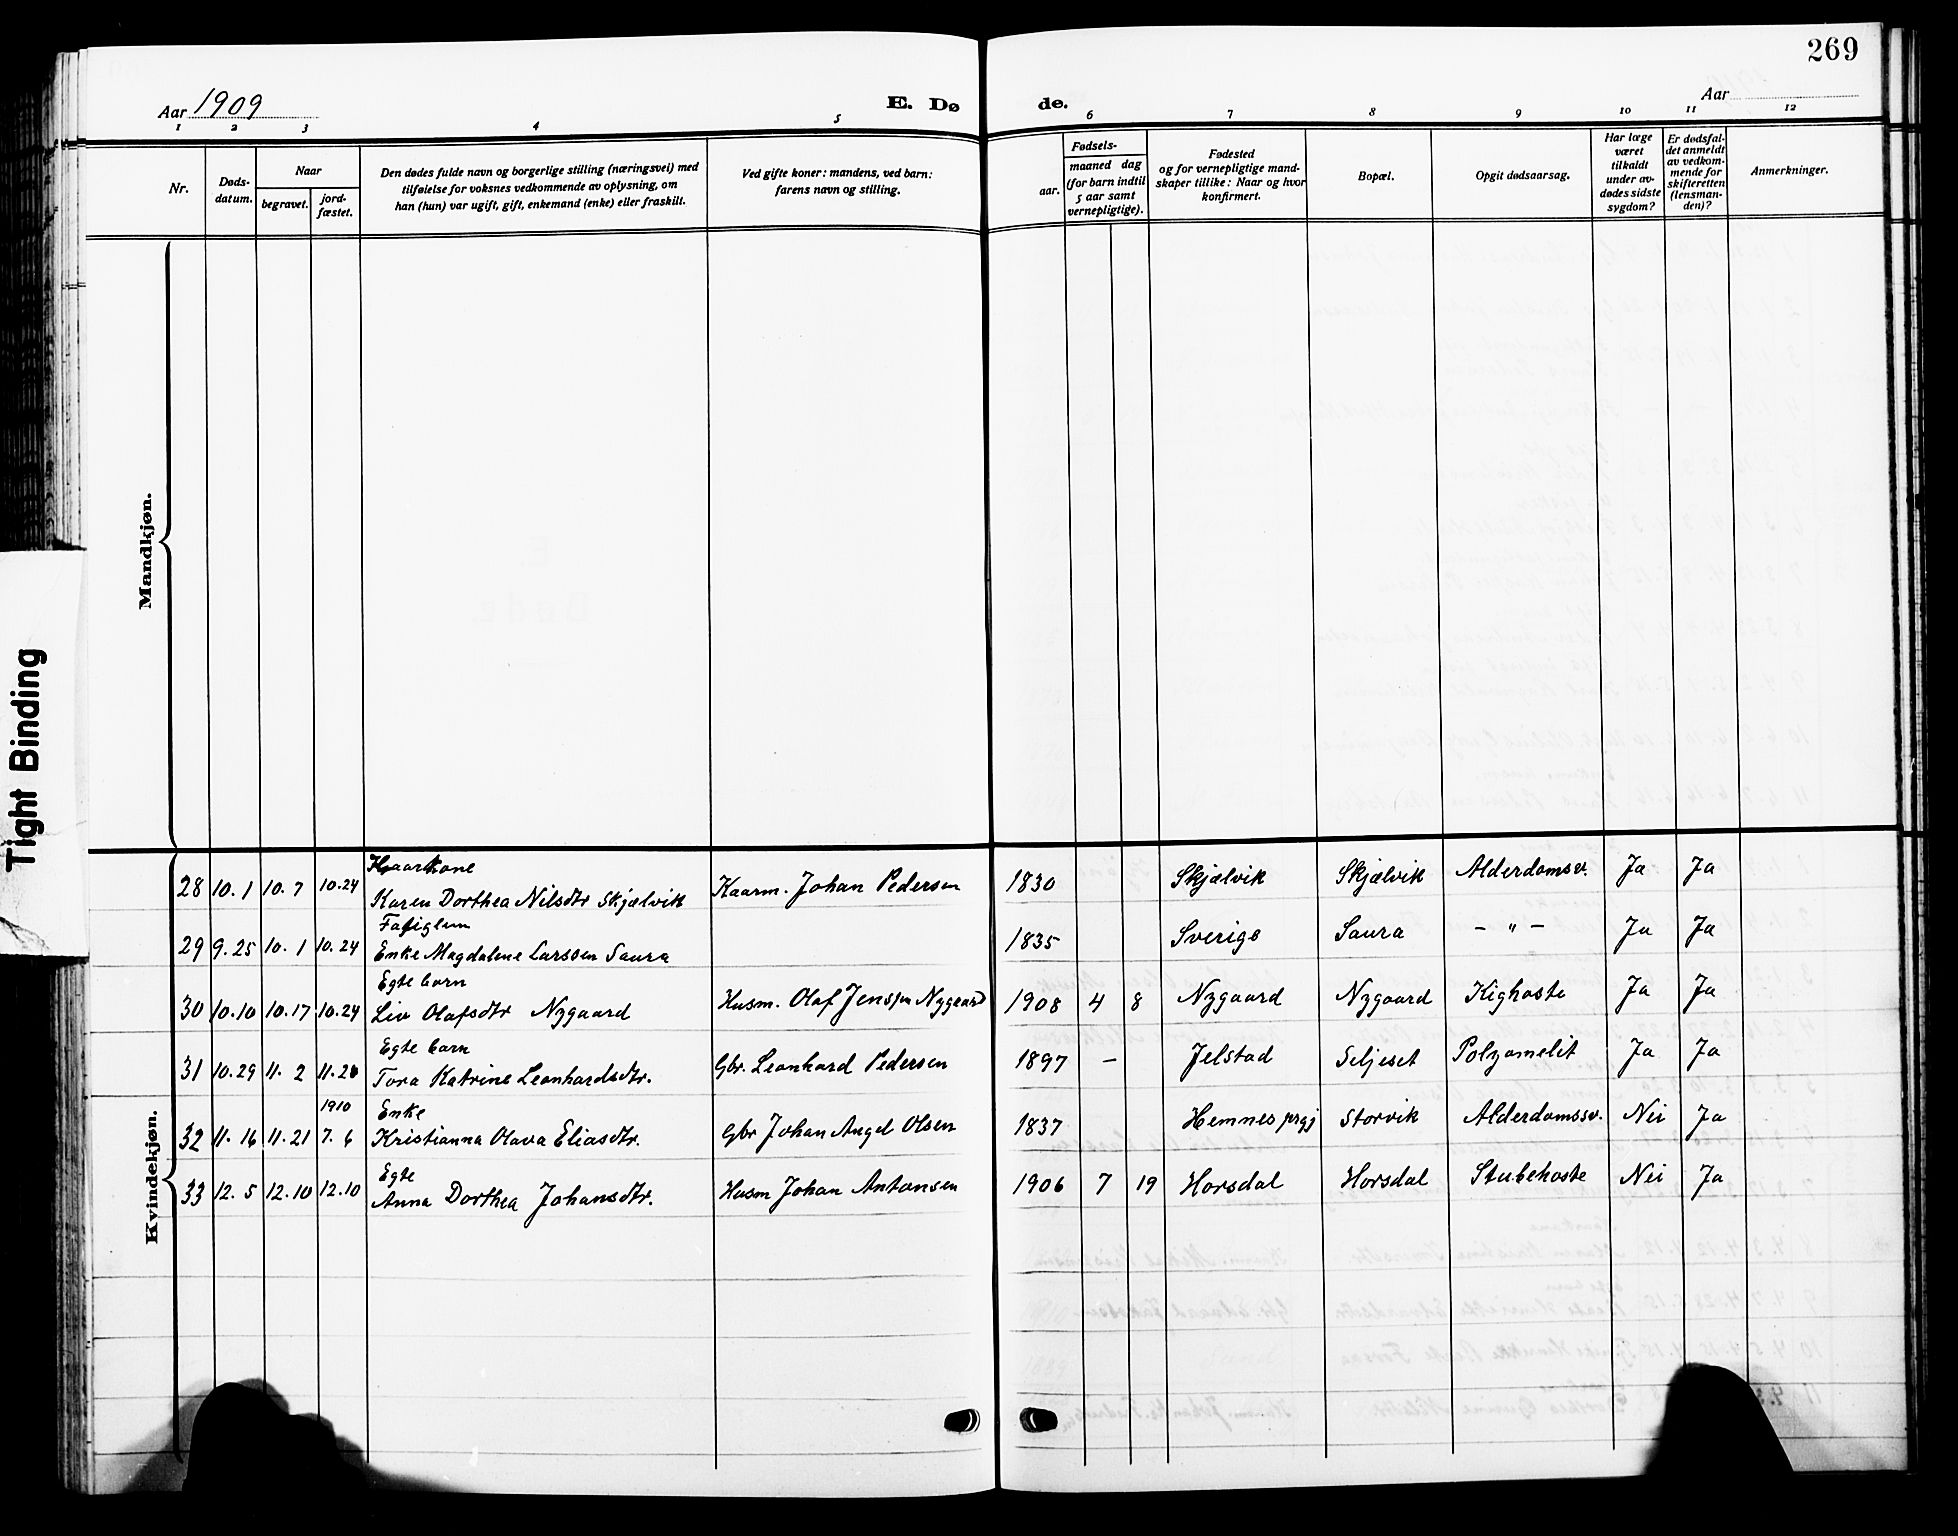 269
Aar 1909
E. Dø
de.
Aar
1 2 3 4 5 6 7 8 9 10 11 12
Nr.
Døds-
datum.
Naar
begravet.
jord-
fæstet.
Den dødes fulde navn og borgerlige stilling (næringsvei) med
tilføielse for voksnes vedkommende av oplysning, om
han (hun) var ugift, gift, enkemand (enke) eller fraskilt.
Ved gifte koner: mandens, ved barn:
farens navn og stilling.
Fødsels-
aar.
maaned dag
(for barn indtil
5 aar samt
vernepligtige).
Fødested
og for vernepligtige mand-
skaper tillike: Naar og hvor
konfirmert.
Bopæl.
Opgit dødsaarsag.
Har læge
været
tilkaldt
under av-
dødes sidste
sygdom?
Er dødsfal-
det anmeldt
av vedkom-
mende for
skifteretten
(lensman-
den)?
Anmerkninger.
Mandkjøn.
Tight Binding
Kvindekjøn.
Kaarkone
28 10.1 10.7 10.24 Karen Dorthea Nilsdtr Skjælvik Kaarm. Johan Pedersen 1830 Skjælvik Skjælvik Alderdomsv. Ja Ja
29 9.25 10.1 10.24 Enke Magdalene Larssen Saura 1835 Sverige Saura - " - Ja Ja
Egte barn
30 10.10 10.17 10.24 Liv Olafsdtr Nygaard Husm. Olaf Jenssen Nygaard 1908 4 8 Nygaard Nygaard Kighoste Ja Ja
Egte barn
31 10.29 11.2 11. Tora Katrine Leonhardsdtr. Gbr. Leonhard Pedersen 1897 – Jelstad Seljeset Polyomelit Ja Ja
1910 Enke
32 11.16 11.21 7.6 Kristianna Olava Eliasdtr. Gbr Johan Angel Olsen 1837 Hemnes prgj Storvik Alderdomssv. Nei Ja
Egte
33 12.5 12.10 12.10 Anna Dorthea Johansdtr. Husm Johan Antonsen 1906 7 19 Horsdal Horsdal Stubehoste Nei Ja